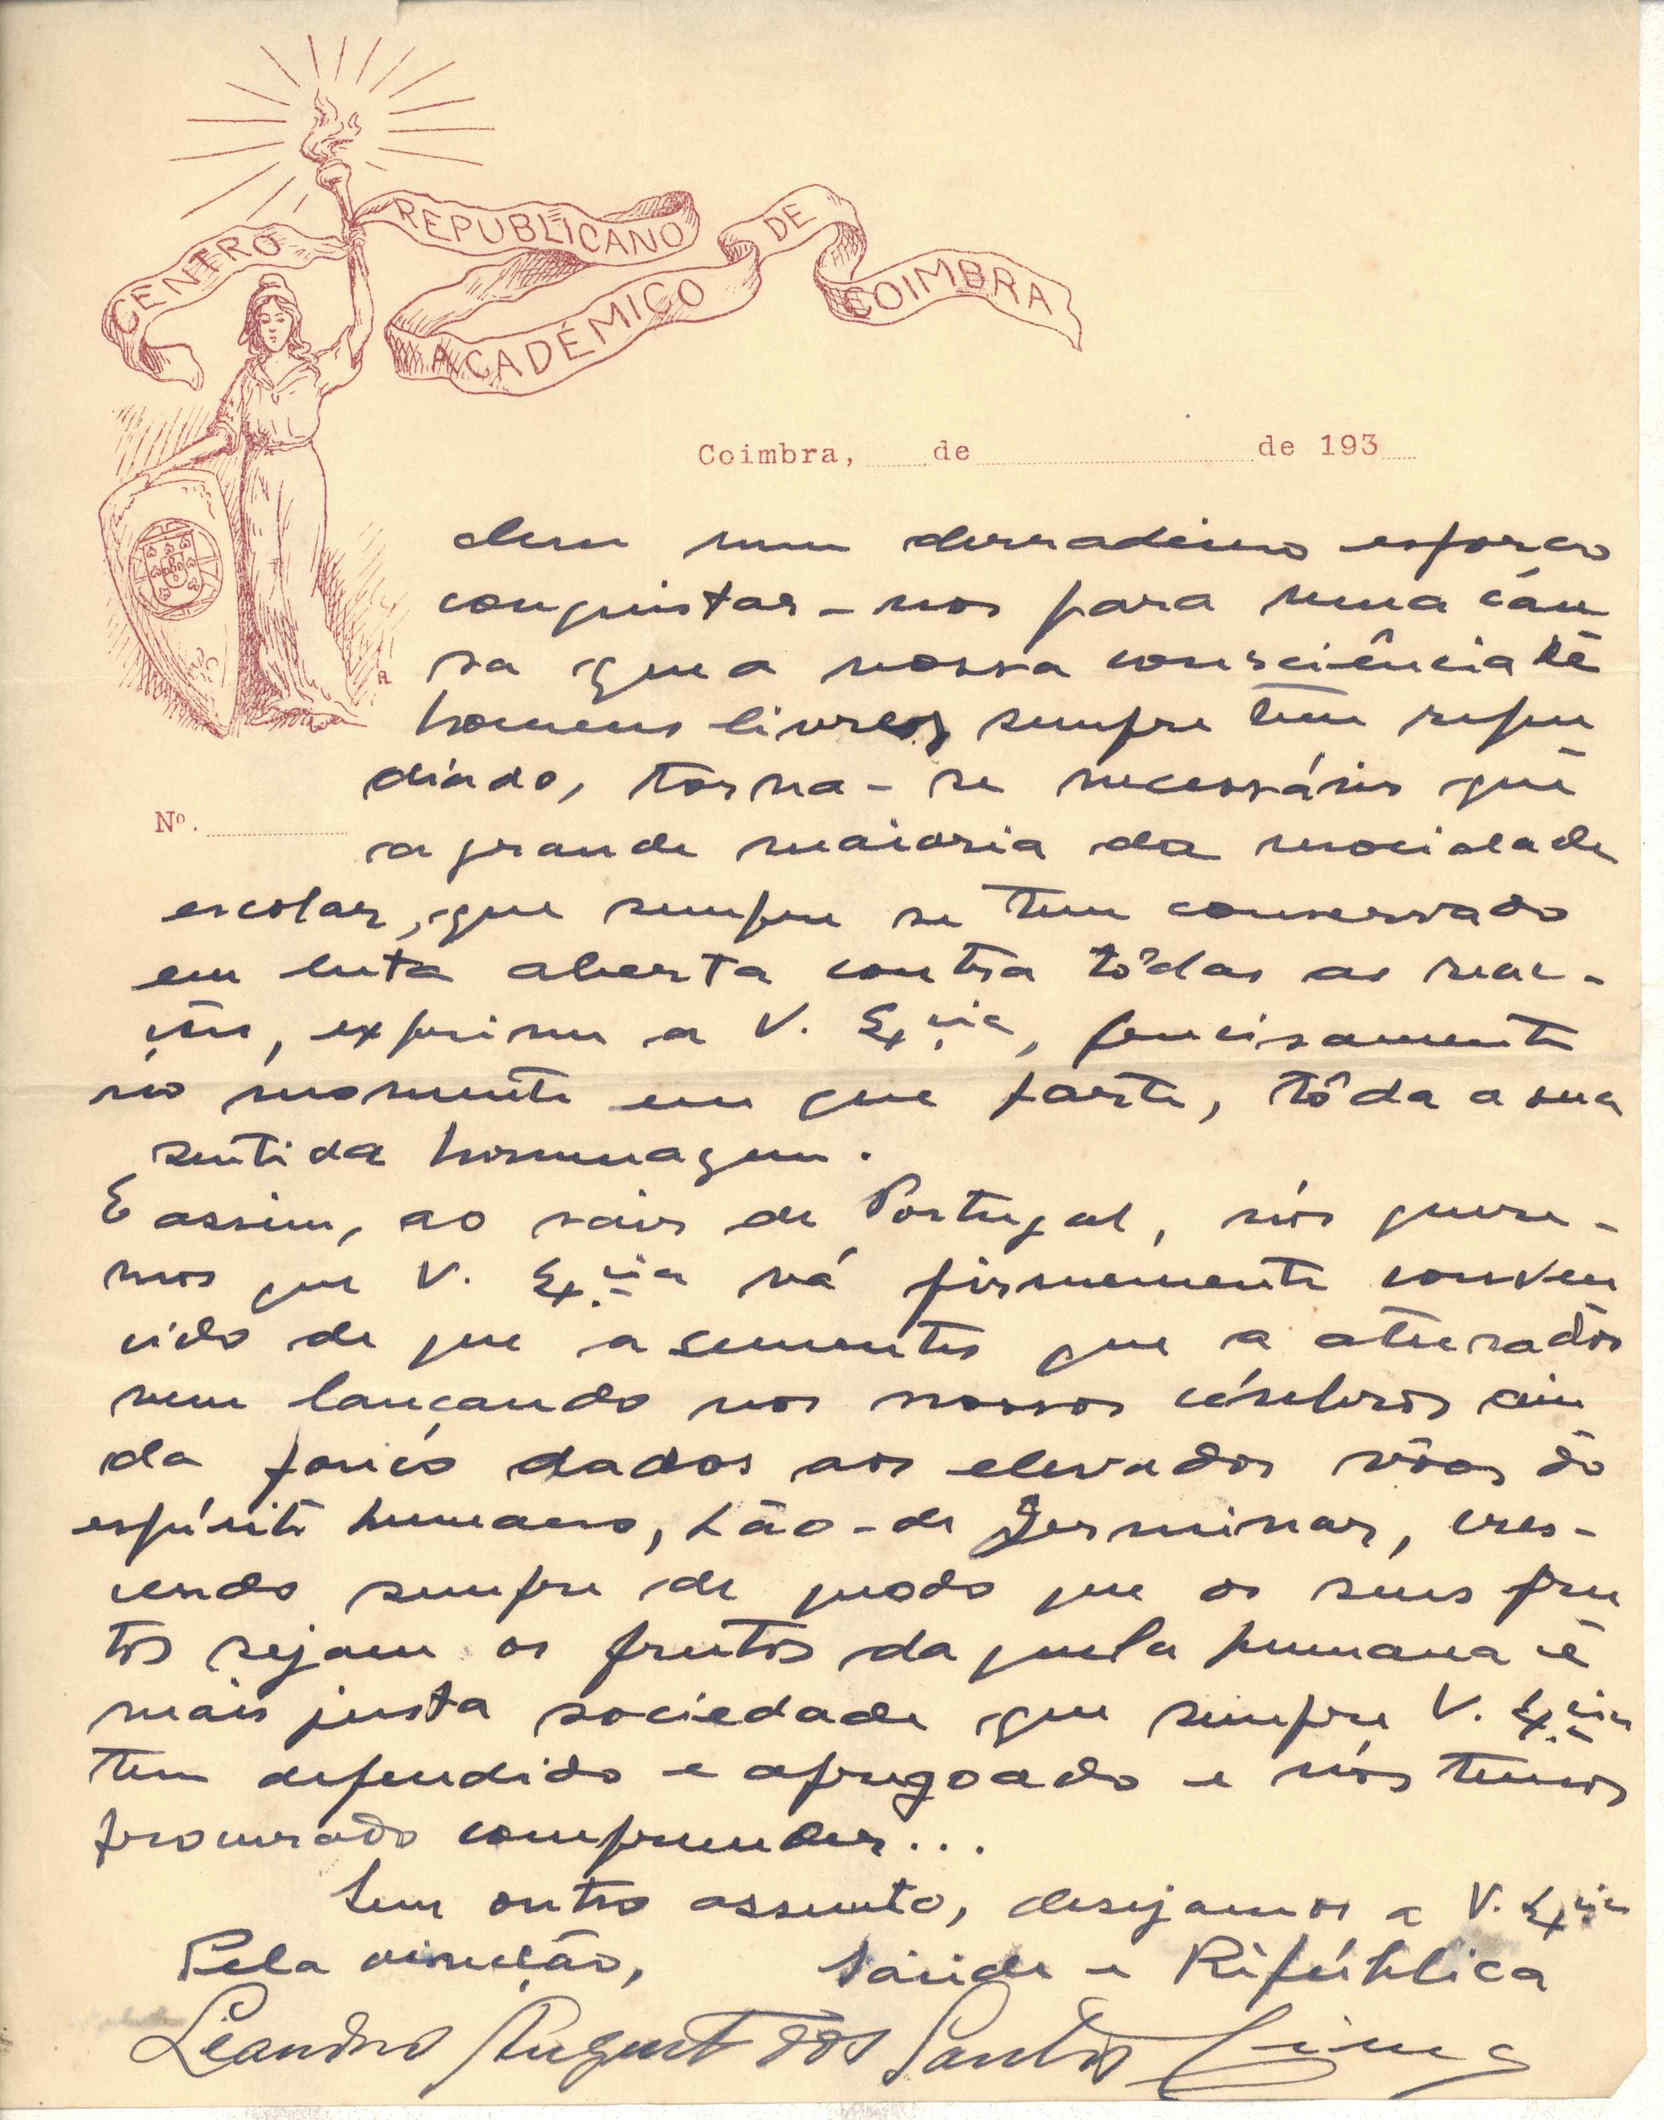 CENTRO REPUBLICANO
ACADÉMICO DE COIMBRA
Coimbra, de de 193
dem num derradeiro esforço
conquistar-nos para uma cáu
sa que a nossa consciência de
homens livres sempre tem repu
diado, torna-se necessário que
Nº.
a grande maioria da mocidade
escolar, que sempre se tem conservado
em luta aberta contra tôdas as reac-
ções, exprima a V. Ex.cia, precisamente
no momento em que parte, tôda a sua
sentida homenagem.
E assim, ao sair de Portugal, nós quere-
mos que V. Ex.cia vá firmemente conven
cido de que a sementes que a
vem lançando nos nossos cérebros ain
da pouco dados aos elevados vôos do
espírito humano, hão-de germinar, cres-
cendo sempre de modo que os seus fru
tos sejam os frutos daquela humana e
mais justa sociedade que sempre V. Ex.cia
tem defendido e apregoado e nós temos
procurado compreender...
Sem outro assunto, desejamos a V. Ex.cia
Pela direcção, Saúde e República
Leandro August dos Santos Lima